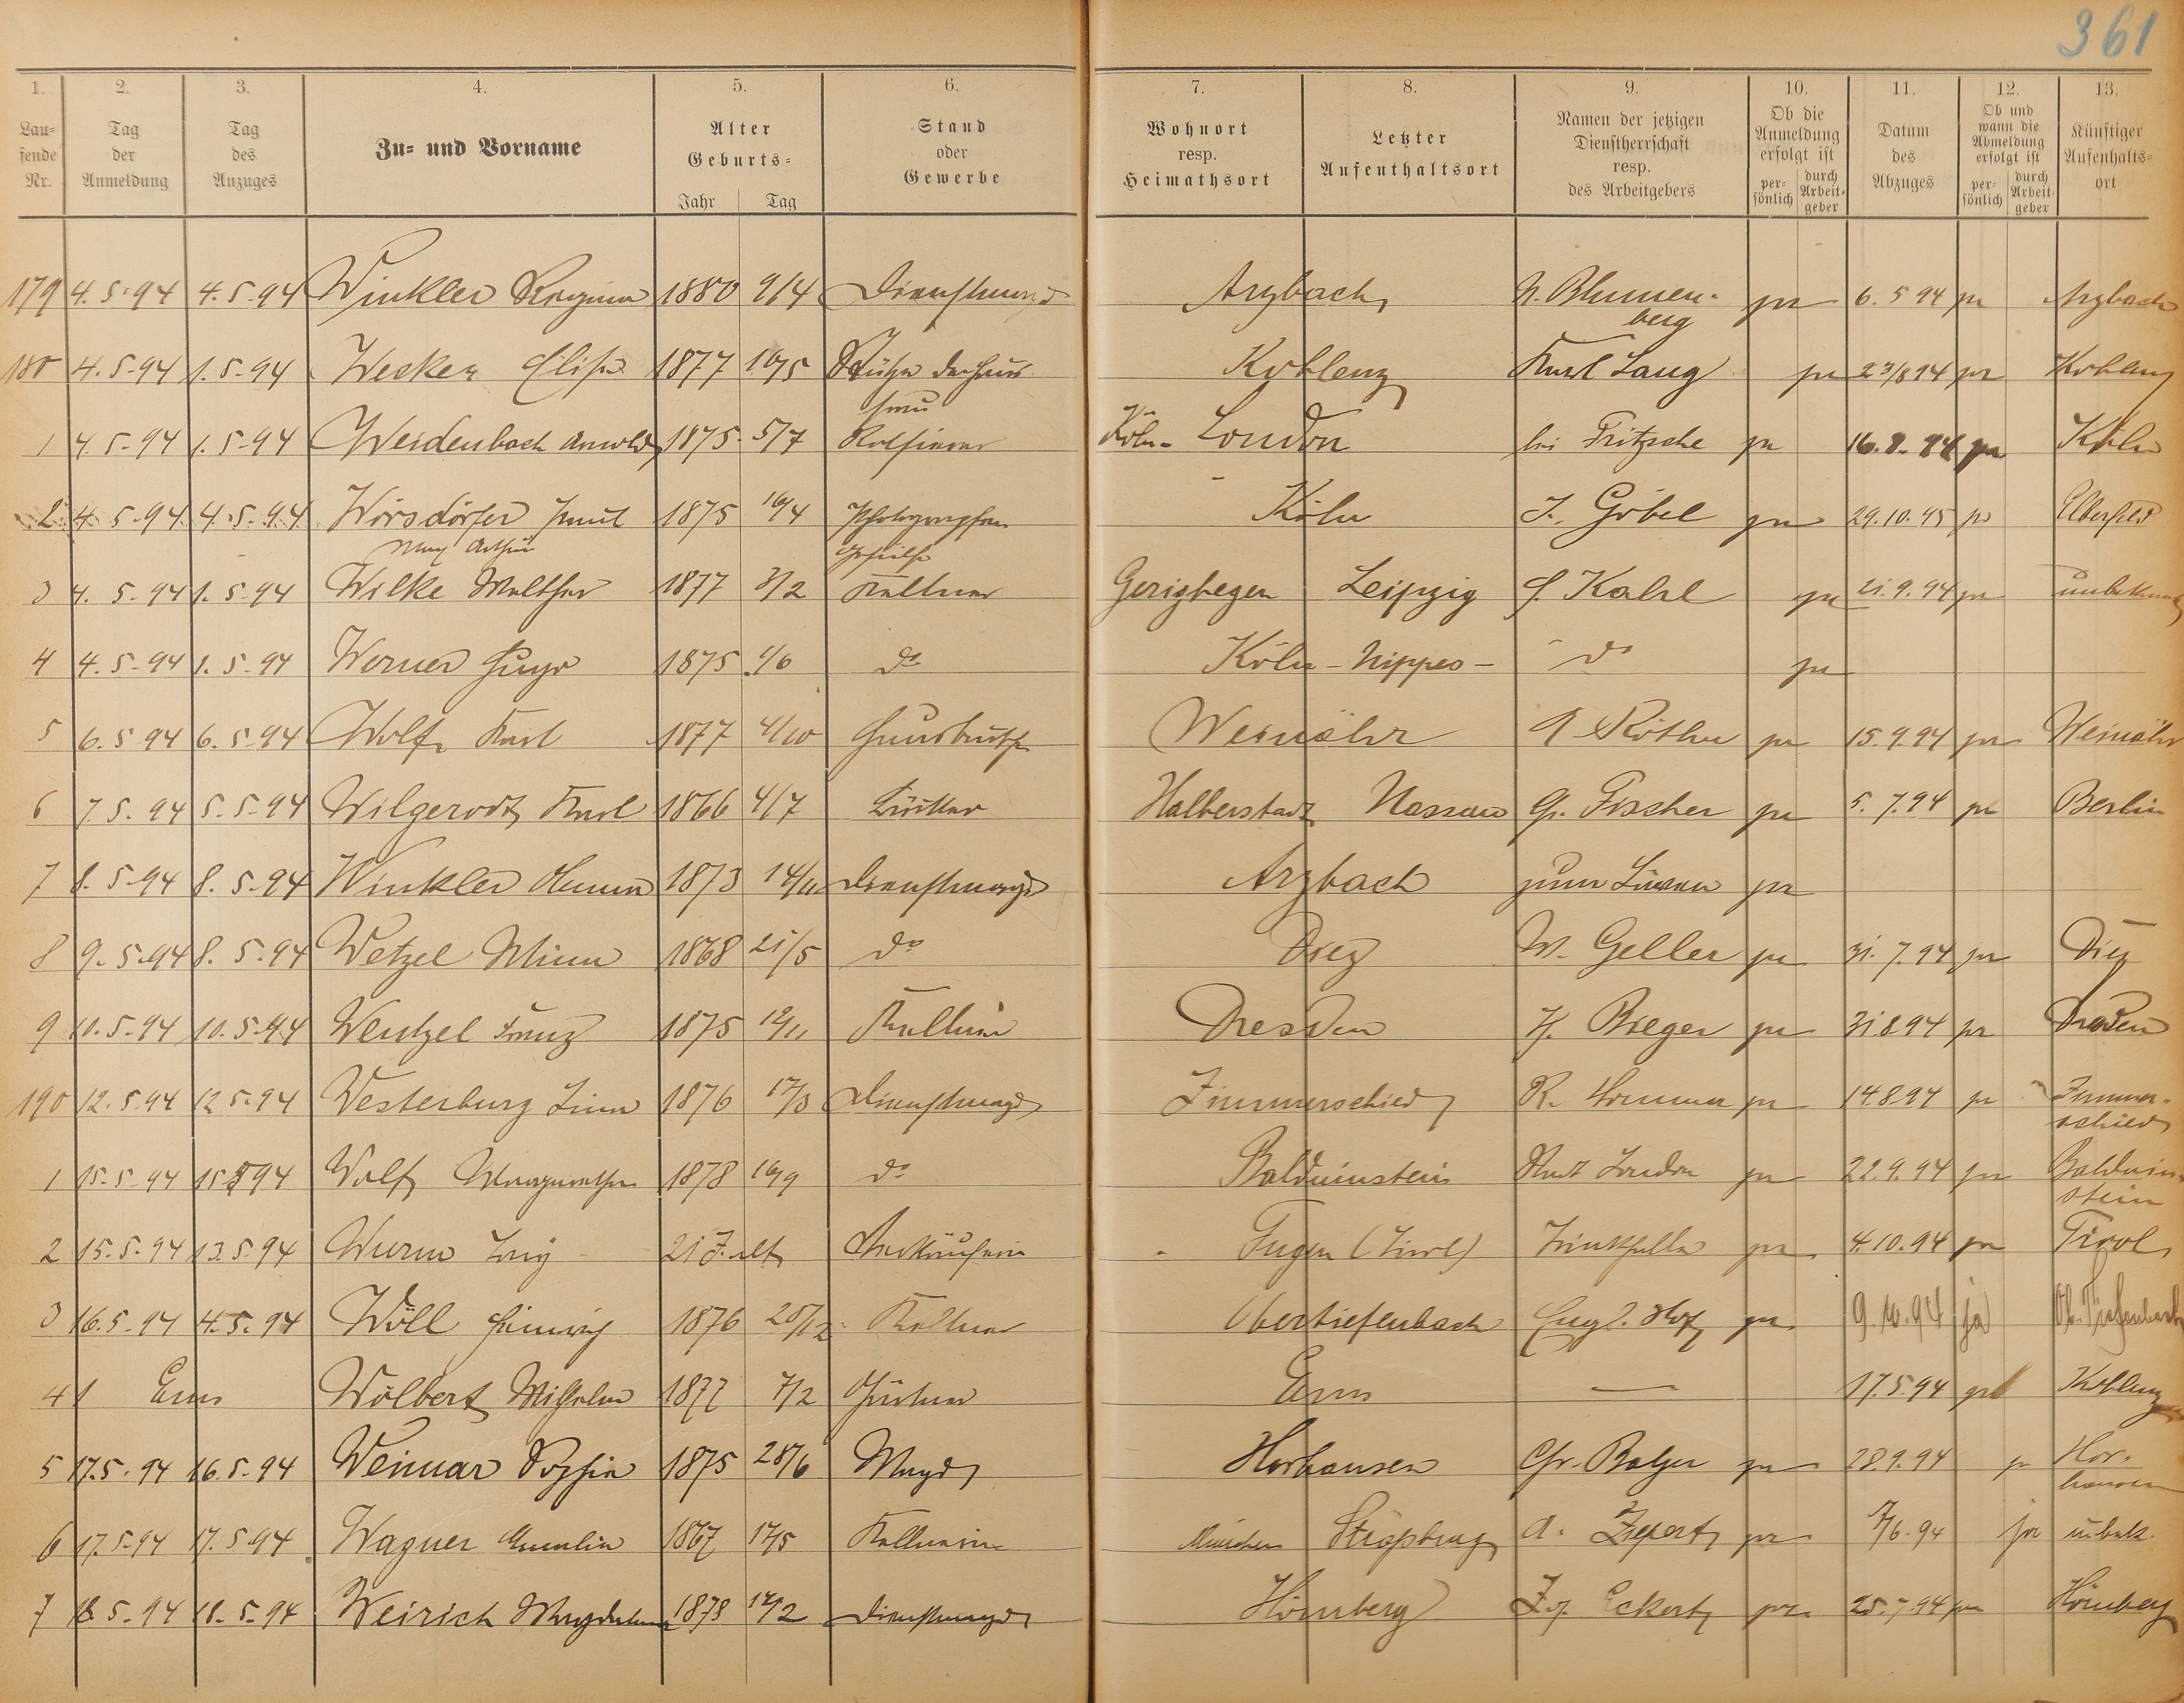 361
1. 2. 3. 4. 5. 6. 7. 8. 9. 10. 11. 12. 13.
Lau=
fende
Nr.
Tag
der
Anmeldung
Tag
des
Anzuges
Zu= und Vorname
Alter
Geburts=
Jahr Tag
Stand
oder
Gewerbe
Wohnort
resp.
Heimathsort
Letzter
Aufenthaltsort
Namen der jetzigen
Dienstherrschaft
resp.
des Arbeitgebers
Ob die
Anmeldung
erfolgt ist
per=
sönlich
durch
Arbeit=
geber
Datum
des
Abzuges
Ob und
wann die
Abmeldung
erfolgt ist
per=
sönlich
durch
Arbeit=
geber
Künftiger
Aufenhalts=
ort
179 4.5.94 4.5.94 Winkler Regina 1880 9/4 Dienstmagd Arzbach N. Blumen- ja 6.5 94 ja Arzbach
berg
180 4.5.94 1.5.94 Wecker Elise 1877 Stütze der Haus Koblenz Karl Lang ja 23/8 94 ja Koblenz
frau
1 4.5.94 1.5.94 Weidenbach Arnold 1875 5/7 Köln- London bei Fritzsche ja 16.8.94 ja Köln
2 4.5.94 4.5.94 Wörsdörfer Paul 1875 10/4 Photographen Köln J. Göbel ja 29.10.95 ja Elberfeld
Max Arthur gehülfe
3 4.5.94 1.5.94 Wilke Walther 1877 3/2 Kellner Leipzig ja 21.9.94 ja unbekannt
4 4.5.94 1.5.94 Werner Hugo 1875 1/6 do Köln-Nippes- do ja
5 6.5 94 6.5.94 Wolf Karl 1877 4/10 Hausbursche Weinähr ja 15.9.94 ja Weinähr
6 7.5.94 5.5.94 Wilgerodt Karl 1866 4/7 Halberstadt Nassau G. Fischer ja 5.7.94 ja Berlin
7 8.5.94 8.5.94 Winkler Anna 1873 14/11 Dienstmagd Arzbach zum Löwen ja
8 9.5.94 8.5.94 Wetzel Mina 1868 21/5 do Diez W. Geller ja 31.7.94 ja Diez
9 10.5.94 10.5.94 Wentzel Franz 1875 12/11 Kellner Dresden H. Bieger ja 31 8.94 ja Dresden
190 12.5.94 12 5.94 Westerburg Lina 1876 17/3 Dienstmagd Zimmerschied R. Sommer ja 14.8.94 ja Zimmer-
schied
1 15.5.94 15.5 94 Wolf Margarethe 1878 16/9 do Balduinstein Stadt London ja 22.9.94 ja Balduin-
stein
2 15.5.94 13.5.94 Wurm 21 J. alt Verkäuferin Fügen (Tirol) Trinkhalle ja 4.10.94 ja Tirol
3 16.5.94 4.5.94 Wöll Heinrich 1876 Kellner Obertiefenbach Engl. Hof ja 9.10.94 ja Ob. Tiefenbach
4 Ems Wölbert Wilhelm 1877 7/2 Gärtner Ems — 17.5.94 Koblenz
5 17.5.94 16.5.94 Weimar Sophie 1875 28/6 Magd Horhausen Chr. Balzer ja 28.9.94 ja Hor-
hausen
6 17.5.94 17.5.94 Wagner Amalie 1867 17/5 Kellnerin München Straßburg A. ja 7/6.94 ja unbek.
7 18.5.94 18.5.94 Weirich Magdalena 1878 12/2 Dienstmagd Hömberg Jos. Eckert ja 25.7.94 ja Hömberg